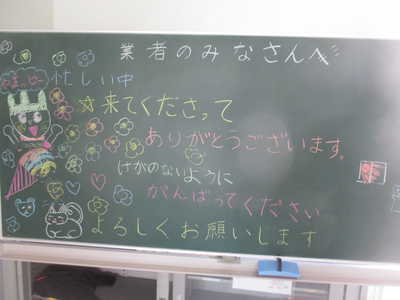 業者のみなさんへ
忙しい中
☆来てくださって
ありがとうございます。
けがのないように
がんばってください
よろしくお願いします